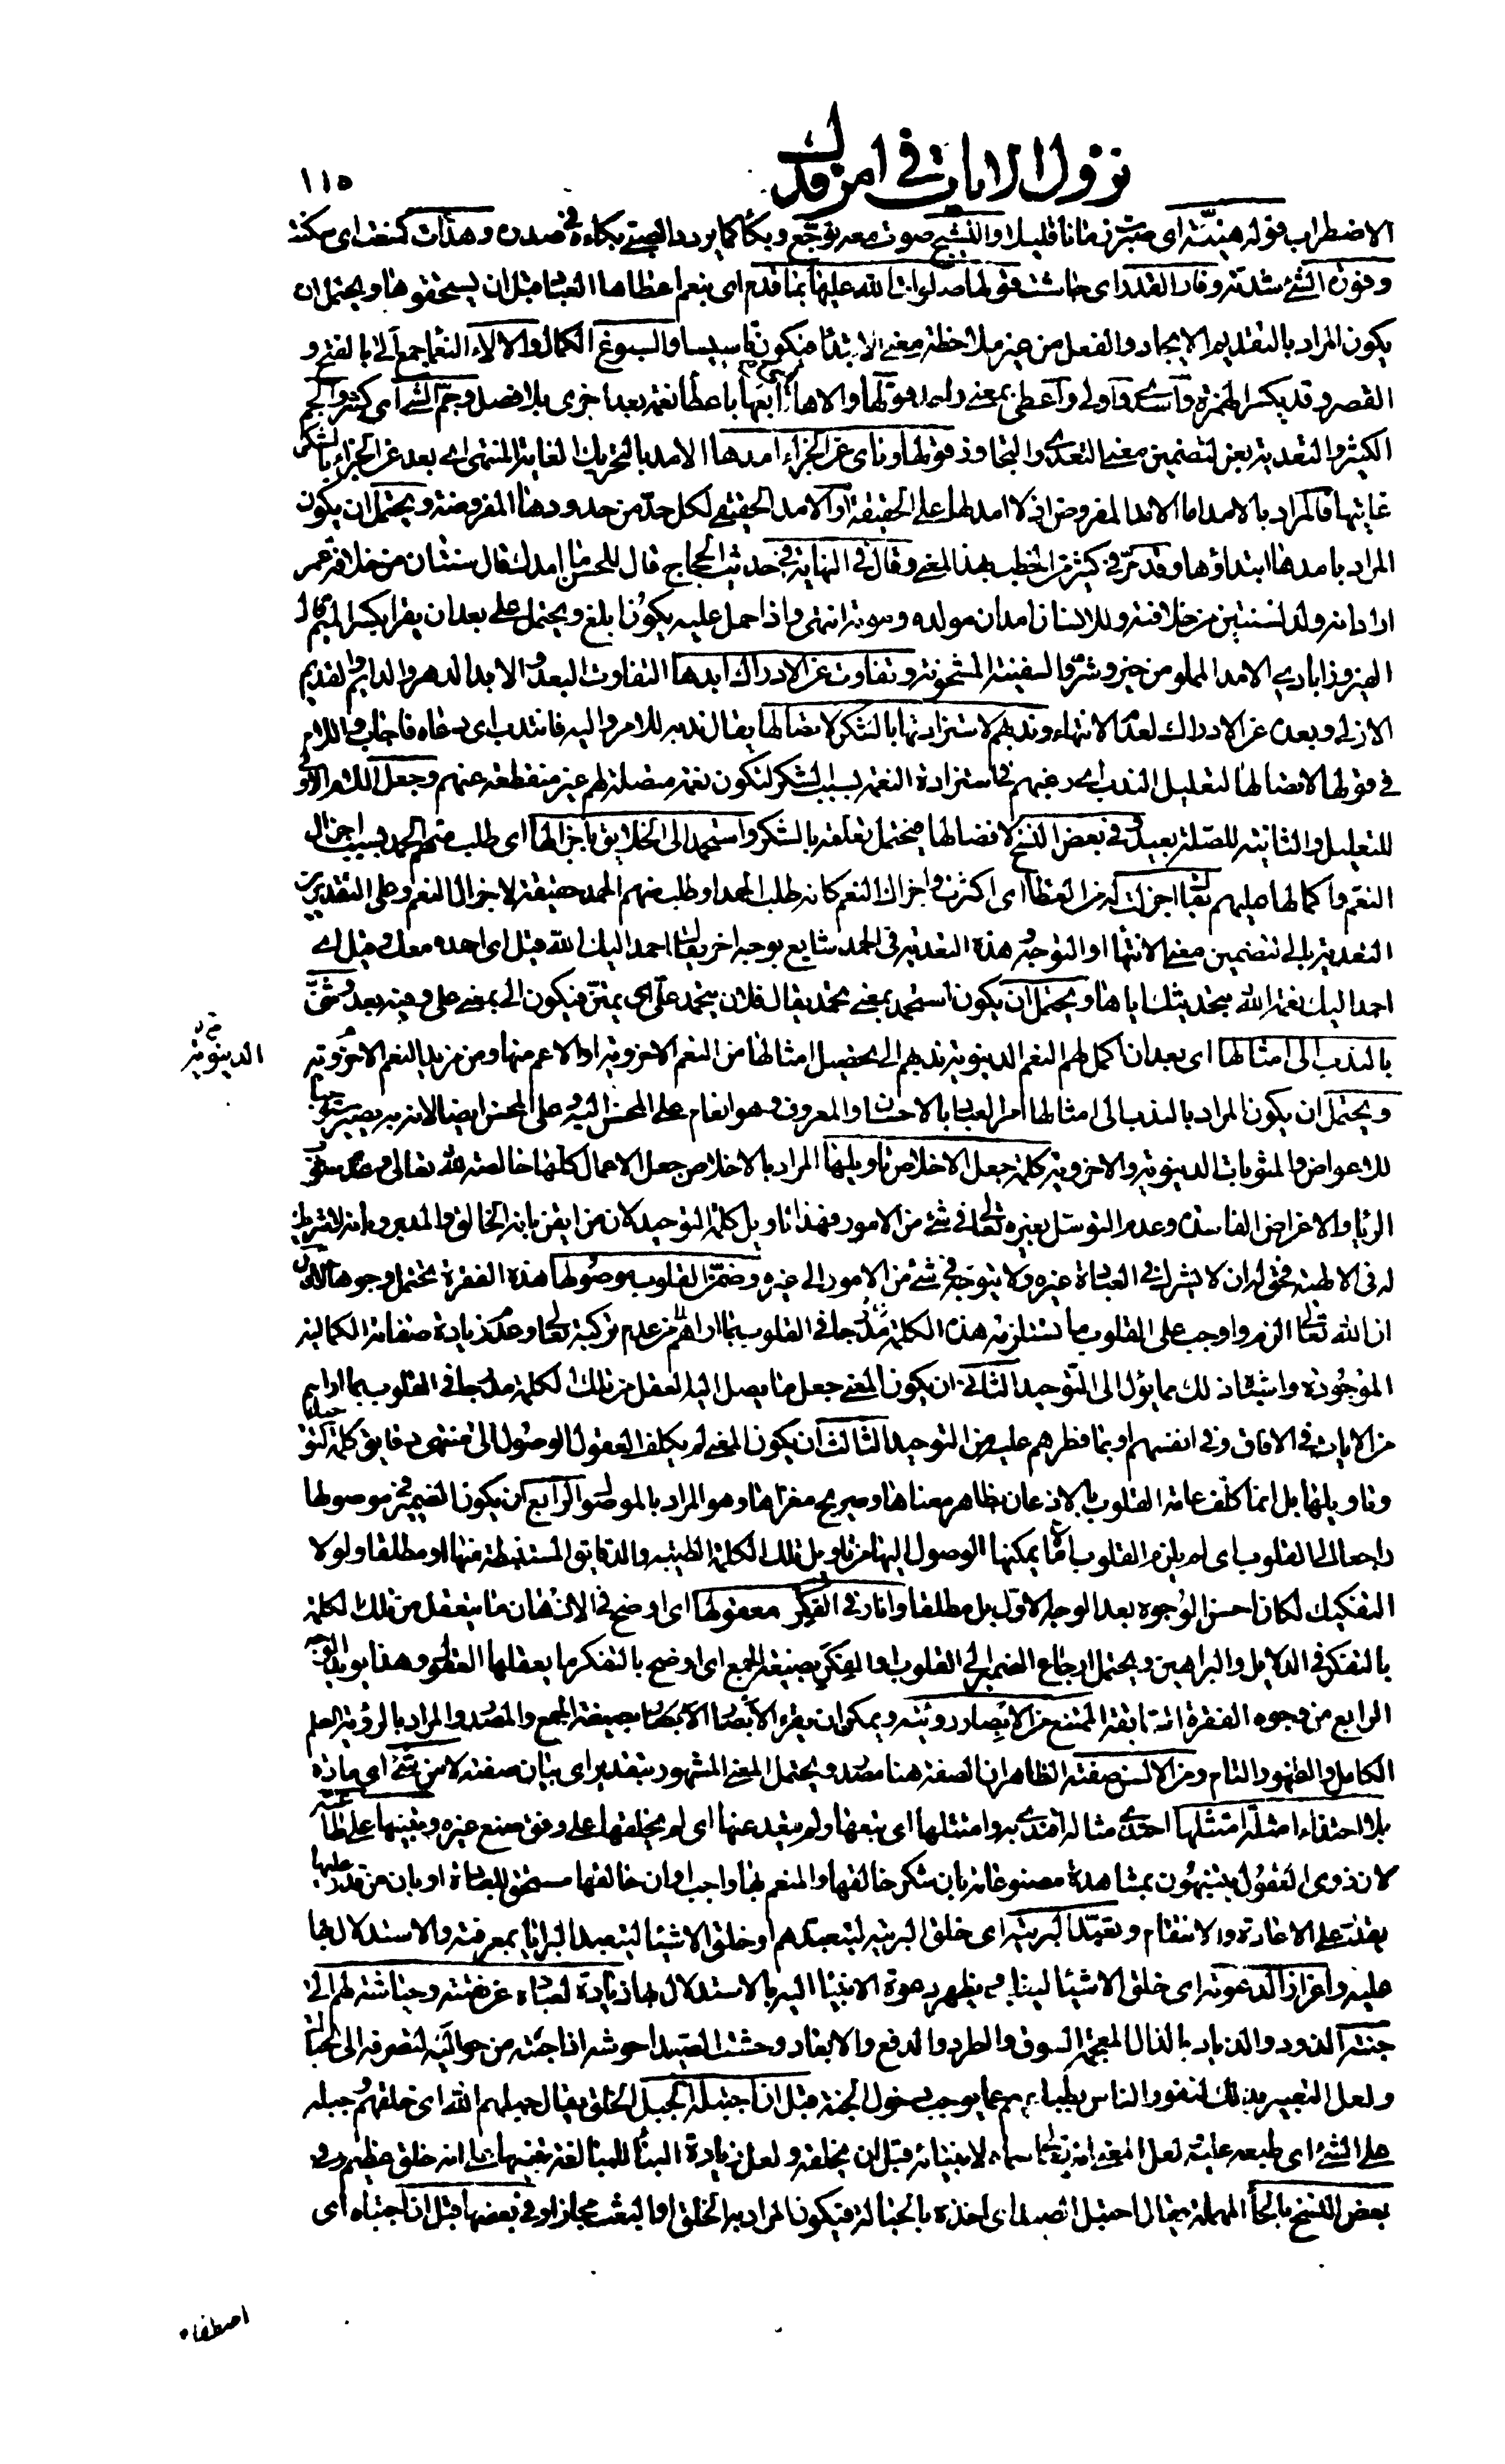 نزول الايات في امر فدك
١١٥
الاضطراب قوله هنيئة اى صبرت زمانا قليلا والنشيج صوت معه توجع وبكاء كما يردد الصبى بكاءه فى صدره وهدأت كمنعت اى سكنت
وفورة الشئ شدته وفار القدر اى جاشت قولها صلوات الله عليها بما قدم اى بنعم اعطاها العباد قبل ان يستحقوها ويحتمل ان
يكون المراد بالتقديم الايجاد والفعل من غير ملاحظة معنى الابتداء فيكون تاسيسا والسبوغ الكمال والالاء النعماء جمع ألى بالفتح و
القصر وقد يكسر الهمزة واسدى واولى واعطى بمعنى واحد قولها والاها اى تابعها باعطاء نعمة بعد اخرى بلا فصل وجم الشئ اى كثر والجم
الكثير والتعدية بعن لتضمين معنى التعدى والتجاوز قولها وناى عن الجزاء امدها الامد بالتحريك الغاية المنتهى اى بعد عن الجزاء بالشكر
غايتها فالمراد بالامد اما الامد المفروض اذ لا امد لها على الحقيقة او الامد الحقيقى لكل حد من حدودها المفروضة ويحتمل ان يكون
المراد بامدها ابتداؤها وقد مر فى كثير من الخطب بهذا المعنى وقال فى النهاية فى حديث الحجاج قال للحسن ما امدك قال سنتان من خلافة عمر
اراد انه ولد لسنتين من خلافته وللانسان امدان مولده وموته انتهى واذا حمل عليه يكون ابلغ ويحتمل على بعد ان يقرا بكسر الميم قال
الفيروزابادى الامد المملو من خير وشر والسفينة المشحونة وتفاوت عن الادراك ابدها التفاوت البعد والابد الدهر والدايم والقديم
الازلى وبعده عن الادراك لعدم الانتهاء وندبهم لاستزادتها بالشكر لاتصالها يقال ندبه للامر واليه فانتدب اى دعاه فاجاب واللام
فى قولها لاتصالها لتعليل الندب اى رغبهم فى استزادة النعمة بسبب الشكر لتكون نعمه متصلة لهم غير منقطعة عنهم وجعل اللام الاولى
للتعليل والثانية للصلة بعيد وفى بعض النسخ لافضالها فيحتمل تعلقه بالشكر واستحمد الى الخلايق باجزالها اى طلب منهم الحمد بسبب اجزال
النعم واكمالها عليهم يقال اجزلت له من العطاء اى اكثرت واجزال النعم كانه طلب الحمد او طلب منهم الحمد حقيقة لاجزال النعم وعلى التقديرين
التعدية بالى لتضمين معنى الانتهاء او التوجه وهذه التعدية فى الحمد شايع بوجه اخر يقال احمد اليك الله قيل اى احمده معك وقيل اى
احمد اليك نعمة الله بتحديثك اياها ويحتمل ان يكون استحمد بمعنى تحمد يقال فلان يتحمد على اى يمتن فيكون الى بمعنى على وفيه بعد وثنى
بالندب الى امثالها اى بعد ان اكمل لهم النعم الدنيوية ندبهم الى تحصيل امثالها من النعم الاخروية او الاعم منها ومن مزيد النعم الاخروية
الدنيوية
ويحتمل ان يكون المراد بالندب الى امثالها امر العباد بالاحسان والمعروف وهو انعام على المحسن اليه وعلى المحسن ايضا لانه به يصير مستوجبا
للاعواض والمثوبات الدنيوية والاخروية كلمة جعل الاخلاص تاويلها المراد بالاخلاص جعل الاعمال كلها خالصة لله تعالى وعدم شوب
الريا والاغراض الفاسدة وعدم التوسل بغيره تعالى فى شئ من الامور فهذا تاويل كلمة التوحيد لان من ايقن بانه الخالق والمدبر وبانه لا شريك
له فى الالهية فحق له ان لا يشرك فى العبادة غيره ولا يتوجه فى شئ من الامور الى غيره وضمن القلوب موصولها هذه الفقرة تحتمل وجوها الاول
ان الله تعالى الزم واوجب على القلوب ما تستلزمه هذه الكلمة من عدم تركبه تعالى وعدم زيادة صفاته الكمالية
الموجودة واشباه ذلك مما يؤل الى التوحيد الثانى ان يكون المعنى جعل ما يصل اليه العقل من تلك الكلمة مدرجا فى القلوب بما اراهم
من الايات فى الافاق وفى انفسهم او بما فطرهم عليه من التوحيد الثالث ان يكون المعنى لم يكلف العقول الوصول الى منتهى دقايق كلمة التوحيد
وتاويلها بل انما كلف عامة القلوب بالاذعان بظاهر معناها وصريح مغزاها وهو المراد بالموصول الرابع ان يكون الضمير فى موصولها
راجعا الى القلوب اى لم يلزم القلوب الا ما يمكنها الوصول اليها من تاويل تلك الكلمة الطيبة والدقايق المستنبطة منها او مطلقا ولولا
التفكيك لكان احسن الوجوه بعد الوجه الاول بل مطلقا وانار فى الفكر معقولها اى اوضح فى الاذهان ما يتعقل من تلك الكلمة
بالتفكر فى الدلايل والبراهين ويحتمل ارجاع الضمير الى القلوب او الفكر بصيغة الجمع اى اوضح بالتفكر ما يعقلها العقول وهذا يؤيد الوجه
الرابع من وجوه الفقرة السابقة الممتنع من الابصار رؤيته ويمكن ان يقرء الابصار بصيغة الجمع والمصدر والمراد بالرؤية العلم
الكامل والظهور التام ومن الالسن صفته الظاهر ان الصفة هنا مصدر ويحتمل المعنى المشهور بتقدير اى بيان صفته لا من شئ اى مادة
بلا احتذاء امثلة امتثلها احتذى مثاله اقتدى به وامتثلها اى تبعها ولم يتعد عنها اى لم يخلقها على وفق صنع غيره وتنبيها على طاعته
لان ذوى العقول يتنبهون بمشاهدة مصنوعاته بان شكر خالقها والمنعم بها واجب او ان خالقها مستحق للعبادة او بان من قدر عليها
يقدر على الاعادة والانتقام وتعبدا لبريته اى خلق البرية ليتعبدهم او خلق الاشياء ليتعبد البرايا بمعرفته والاستدلال بها
عليه واعزازا لدعوته اى خلق الاشياء ليغلب ويظهر دعوة الانبياء اليه بالاستدلال بها ذيادة لعباده عن نقمته وحياشة لهم الى
جنته الذود والذياد بالذال المعجمة السوق والطرد والدفع والابعاد وحشت الصيد احوشه اذا جئته من حواليه لتصرفه الى الحبالة
ولعل التعبير بذلك لنفور الناس بطباعهم عما يوجب دخول الجنة قبل ان اجتبله الجبل الخلق يقال جبلهم الله اى خلقهم وجبله
على الشئ اى طبعه عليه ولعل المعنى انه تعالى سماه لانبيائه قبل ان يخلقه ولعل زيادة البناء للمبالغة تنبيها على انه خلق عظيم وفى
بعض النسخ بالحاء المهملة يقال احتبل الصيد اى اخذه بالحبالة فيكون المراد به الخلق او البعث مجازا وفى بعضها قبل ان اجتباه اى
اصطفاه